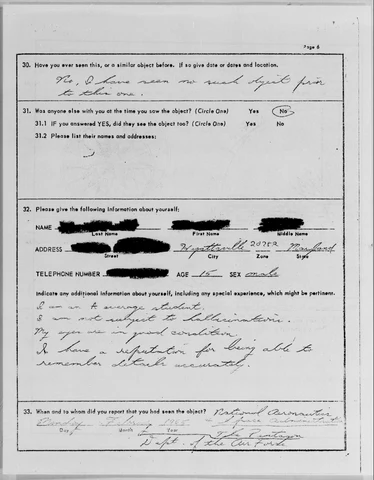 Page 6
30. Have you ever seen this, or a similar object before. If so give date or dates and location.
No, I have seen no such object prior
to this one.
31. Was anyone else with you at the time you saw the object? (Circle One) Yes No
31.1 IF you answered YES, did they see the object too? (Circle One) Yes No
31.2 Please list their names and addresses:
32. Please give the following information about yourself:
NAME
Last Name First Name Middle Name
ADDRESS Hyattsville 20782 Maryland
Street City Zone State
TELEPHONE NUMBER AGE 15 SEX male
Indicate any additional information about yourself, including any special experience, which might be pertinent.
I am an A average student.
I am not subject to hallucinations.
My eyes are in good condition.
I have a reputation for being able to
remember details accurately.
33. When and to whom did you report that you had seen the object? National Aeronautics
Sunday 1965 & Space Administration
Day Month Year The Pentagon
Dept. of the Air Force